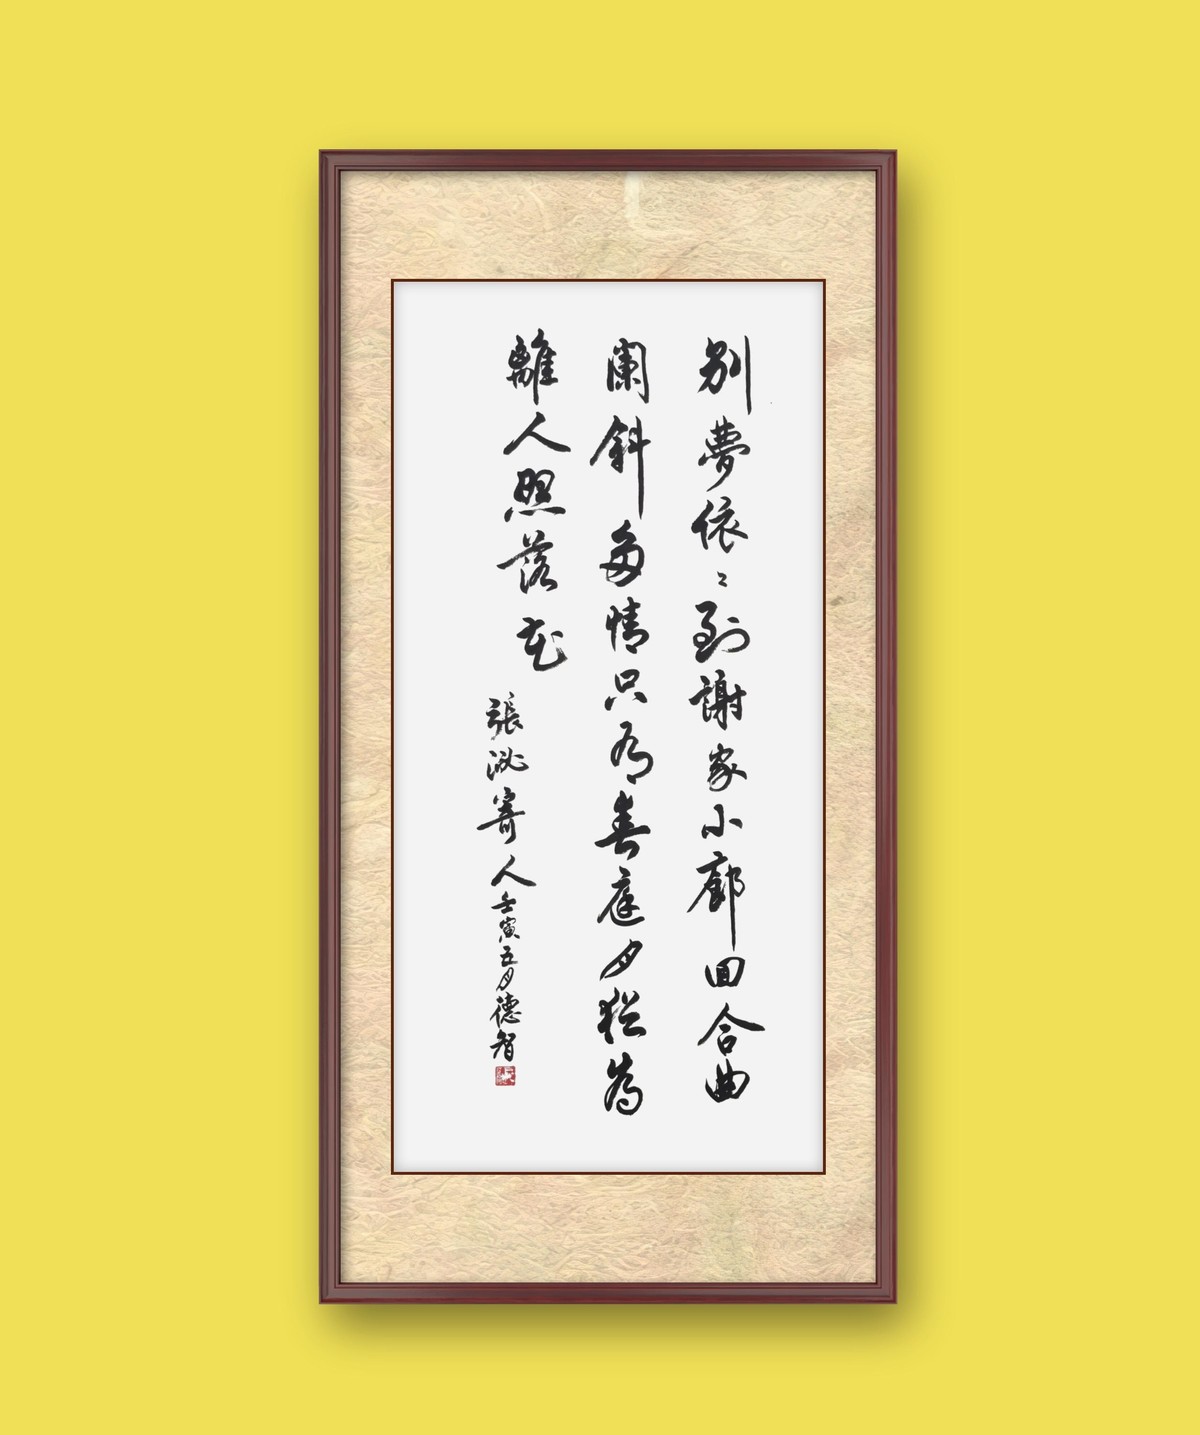 別夢依〻到謝家小廊回合曲
闌斜多情只有春庭月猶為
離人照落花
張泌寄人壬寅五月德智